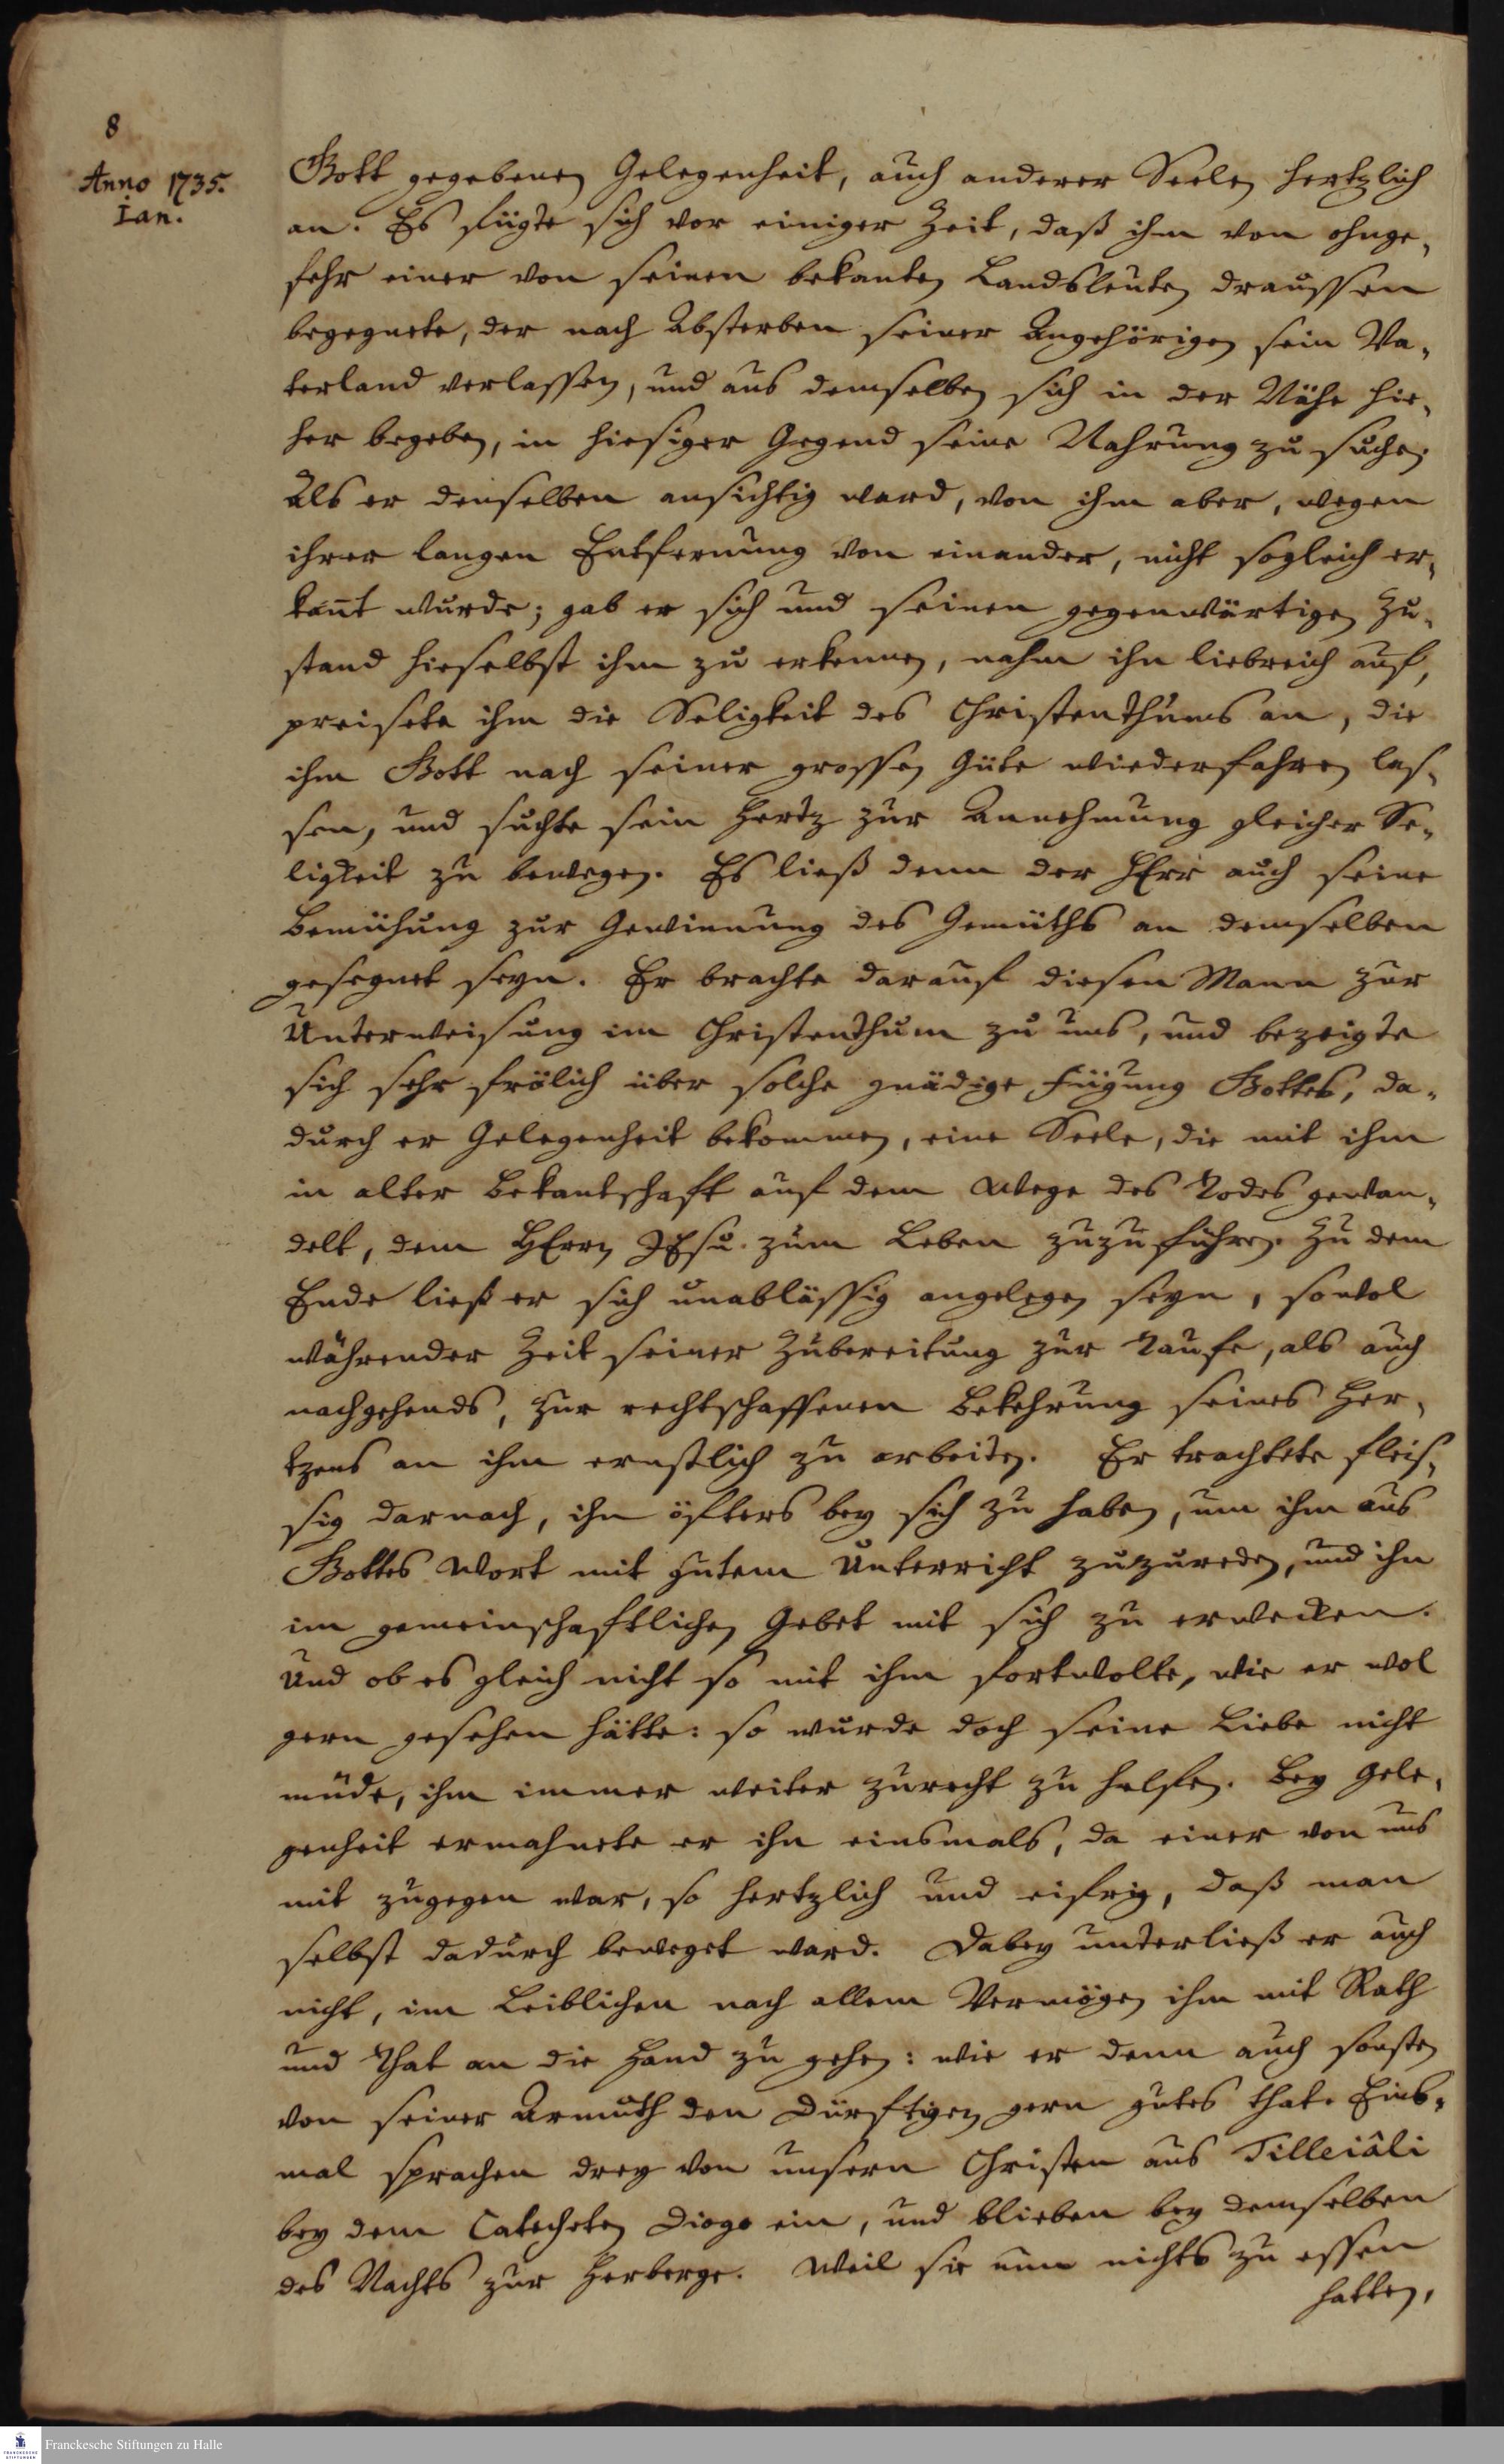 8
Anno 1735.
Ian.
Gott gegebenen Gelegenheit, auch anderer Seelen hertzlich
an. Es fügte sich vor einiger Zeit, daß ihm von ohnge-
fehr einer von seinen bekanten Landsleuten draussen
begegnete, der nach Absterben seiner Angehörigen sein Va-
terland verlassen, und aus demselben sich in der Nähe hie-
her begeben, in hiesiger Gegend seine Nahrung zu suchen.
Als er denselben ansichtig ward, von ihm aber, wegen
ihrer langen Entfernung von einander, nicht sogleich er-
kañt wurde; gab er sich und seinen gegenwärtigen Zu-
stand hieselbst ihm zu erkennen, nahm ihn liebreich auf,
preisete ihm die Seligkeit des Christenthums an, die
ihm Gott nach seiner grossen Güte wiederfahren las-
sen, und suchte sein Hertz zur Annehmung gleicher Se-
ligkeit zu bewegen. Es ließ denn der HErr auch seine
Bemühung zur Gewinnung des Gemüths an demselben
gesegnet seyn. Er brachte darauf diesen Mann zur
Unterweisung im Christenthum zu uns, und bezeigte
sich sehr frölich über solche gnädige Fügung Gottes, da-
durch er Gelegenheit bekommen, eine Seele, die mit ihm
in alter Bekantschaft auf dem Wege des Todes gewan-
delt, dem HErrn JEsu zum Leben zuzuführen. Zu dem
Ende ließ er sich unablässig angelegen seyn, sowol
währender Zeit seiner Zubereitung zur Taufe, als auch
nachgehends, zur rechtschaffenen Bekehrung seines Her-
tzens an ihm ernstlich zu arbeiten. Er trachtete fleis-
sig darnach, ihn öfters bey sich zu haben, um ihm aus
Gottes Wort mit gutem Unterricht zuzureden, und ihn
im gemeinschaftlichen Gebet mit sich zu erwecken.
Und ob es gleich nicht so mit ihm fortwolte, wie er wol
gern gesehen hätte: so wurde doch seine Liebe nicht
müde, ihm immer weiter zurecht zu helfen. Bey Gele-
genheit ermahnete er ihn einsmals, da einer von uns
mit zugegen war, so hertzlich und eifrig, daß man
selbst dadurch beweget ward. Dabey unterließ er auch
nicht, im Leiblichen nach allem Vermögen ihm mit Rath
und That an die Hand zu gehen: wie er denn auch sonsten
von seiner Armuth den Dürftigen gern gutes that. Eins-
mal sprachen drey von unsern Christen aus Tilleiâli
bey dem Catecheten Diogo ein, und blieben bey demselben
des Nachts zur Herberge. Weil sie nun nichts zu essen
hatten,
Franckesche Stiftungen zu Halle